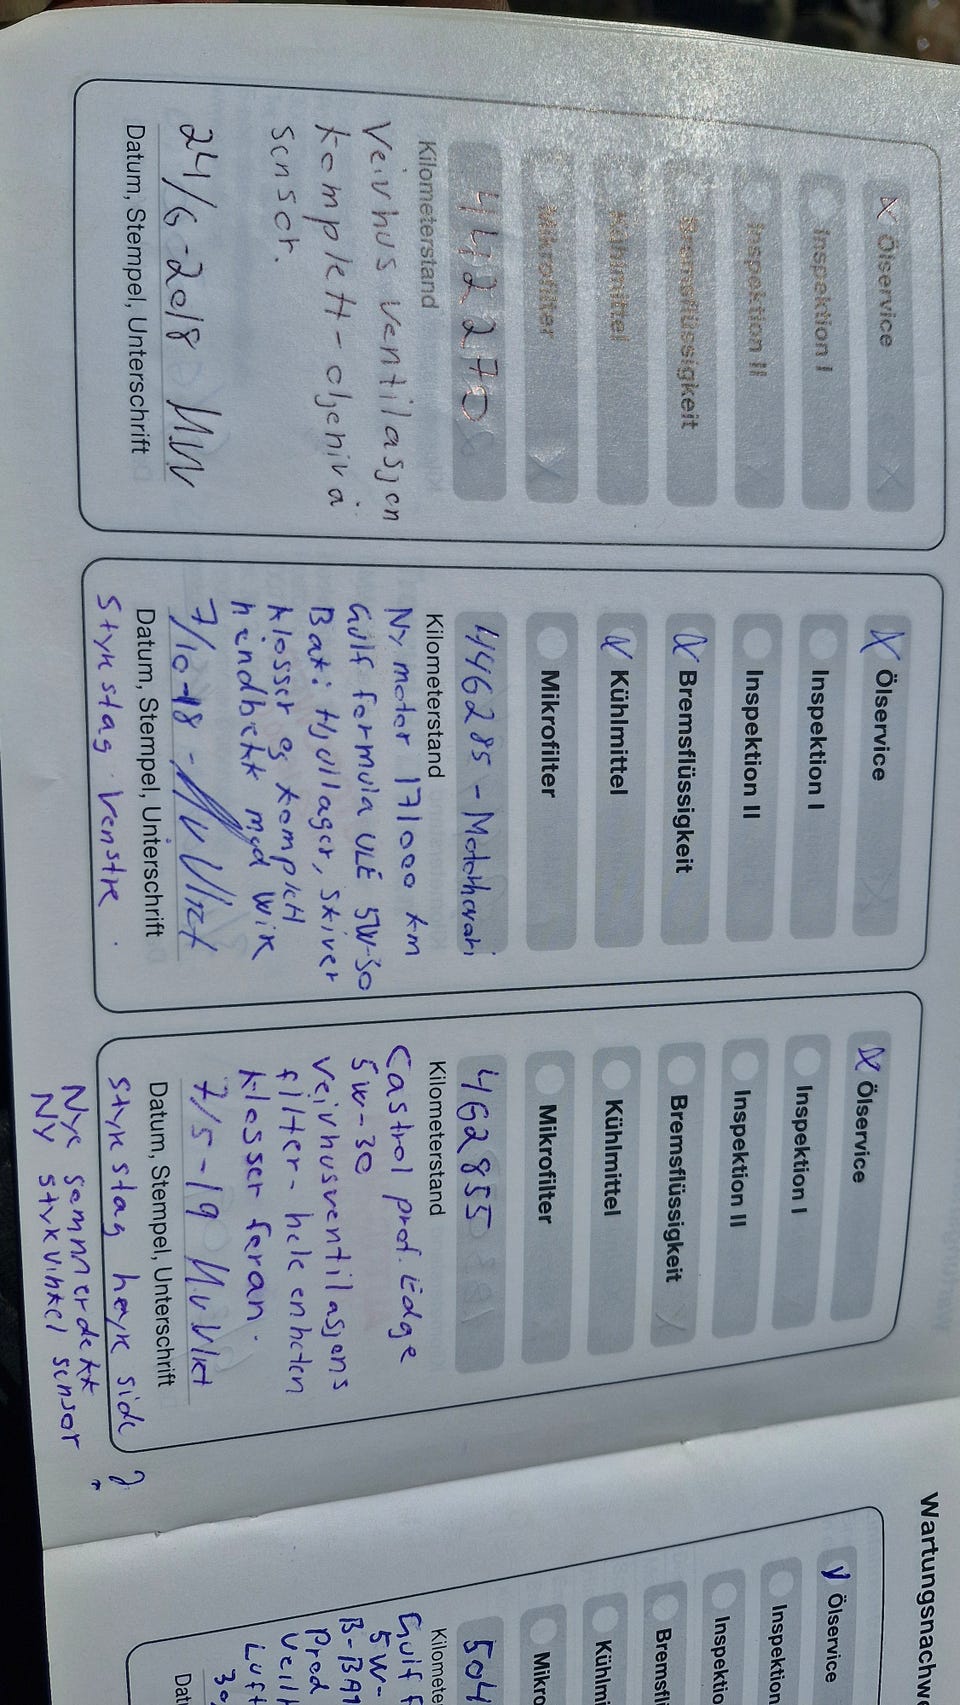 Ölservice
Inspektion I
Inspektion II
Bremsflüssigkeit
Kühlmittel
Mikrofilter
442270
Kilometerstand
Veivhus ventilasjon
komplett - oljenivå
sensor.
24/6-2018
Datum, Stempel, Unterschrift
Ölservice
Inspektion I
Inspektion II
Bremsflüssigkeit
Kühlmittel
Mikrofilter
446285 - Motorhavari
Kilometerstand
Ny motor 171000 km
Gulf formula ULE 5W-30
Bak: Hjullager, skiver
klosser og komplett
håndbrekk med wire
7/10-18 -
Datum, Stempel, Unterschrift
Styrestag venstre.
Ölservice
Inspektion I
Inspektion II
Bremsflüssigkeit
Kühlmittel
Mikrofilter
462855
Kilometerstand
Castrol prof. Edge
5w-30
Veivhusventilasjons
filter - hele enheten
klosser foran.
7/5-19
Datum, Stempel, Unterschrift
Styrestag høyre side
Nye sommerdekk
Ny styrevinkel sensor
Wartungsnachwe
Ölservice
Inspektio
Inspektio
Bremsfl
Kühlmi
Mikro
504
Kilomete
Gulf F
5W-
Prod
Luft
Datu